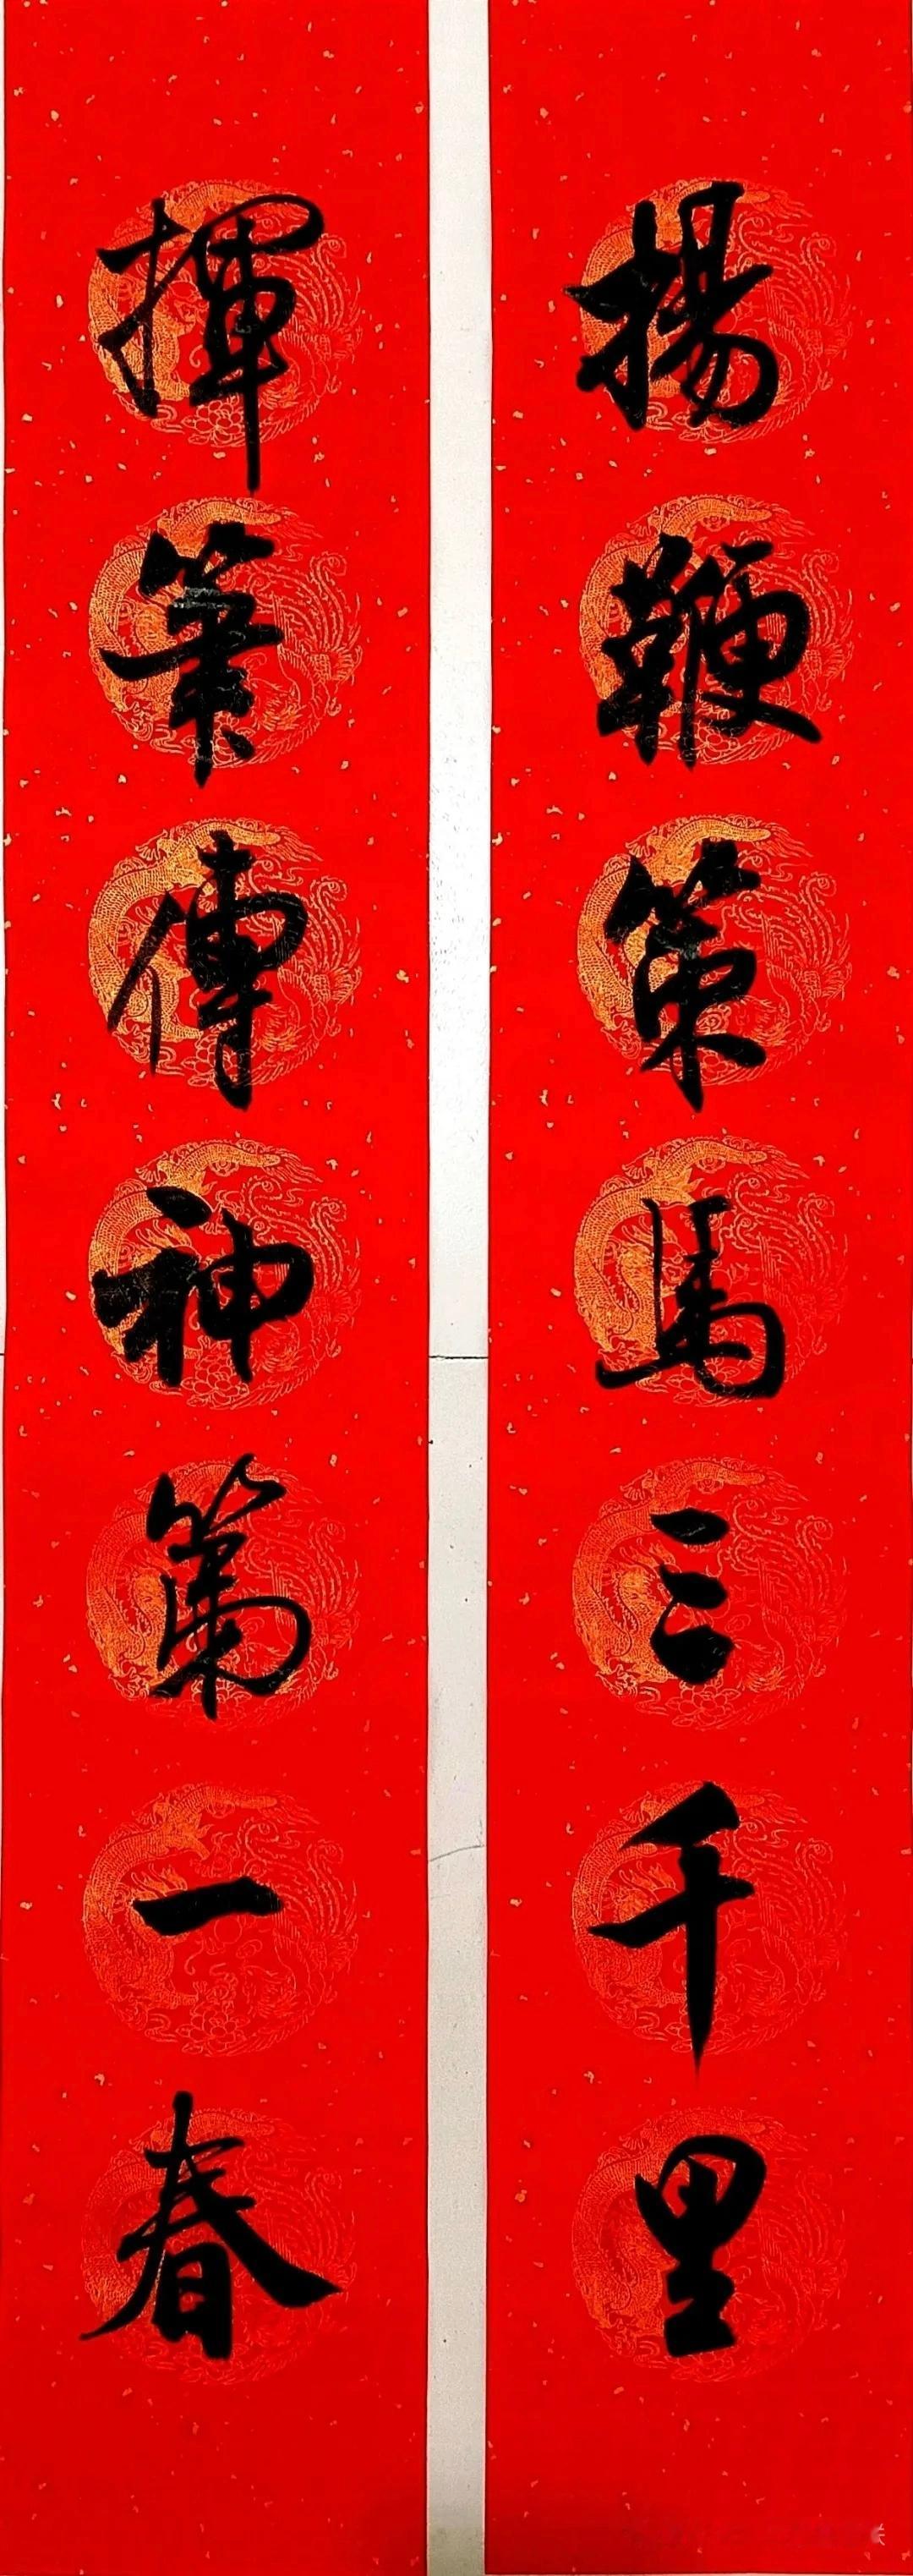 揚鞭策馬三千里
揮筆傳神第一春